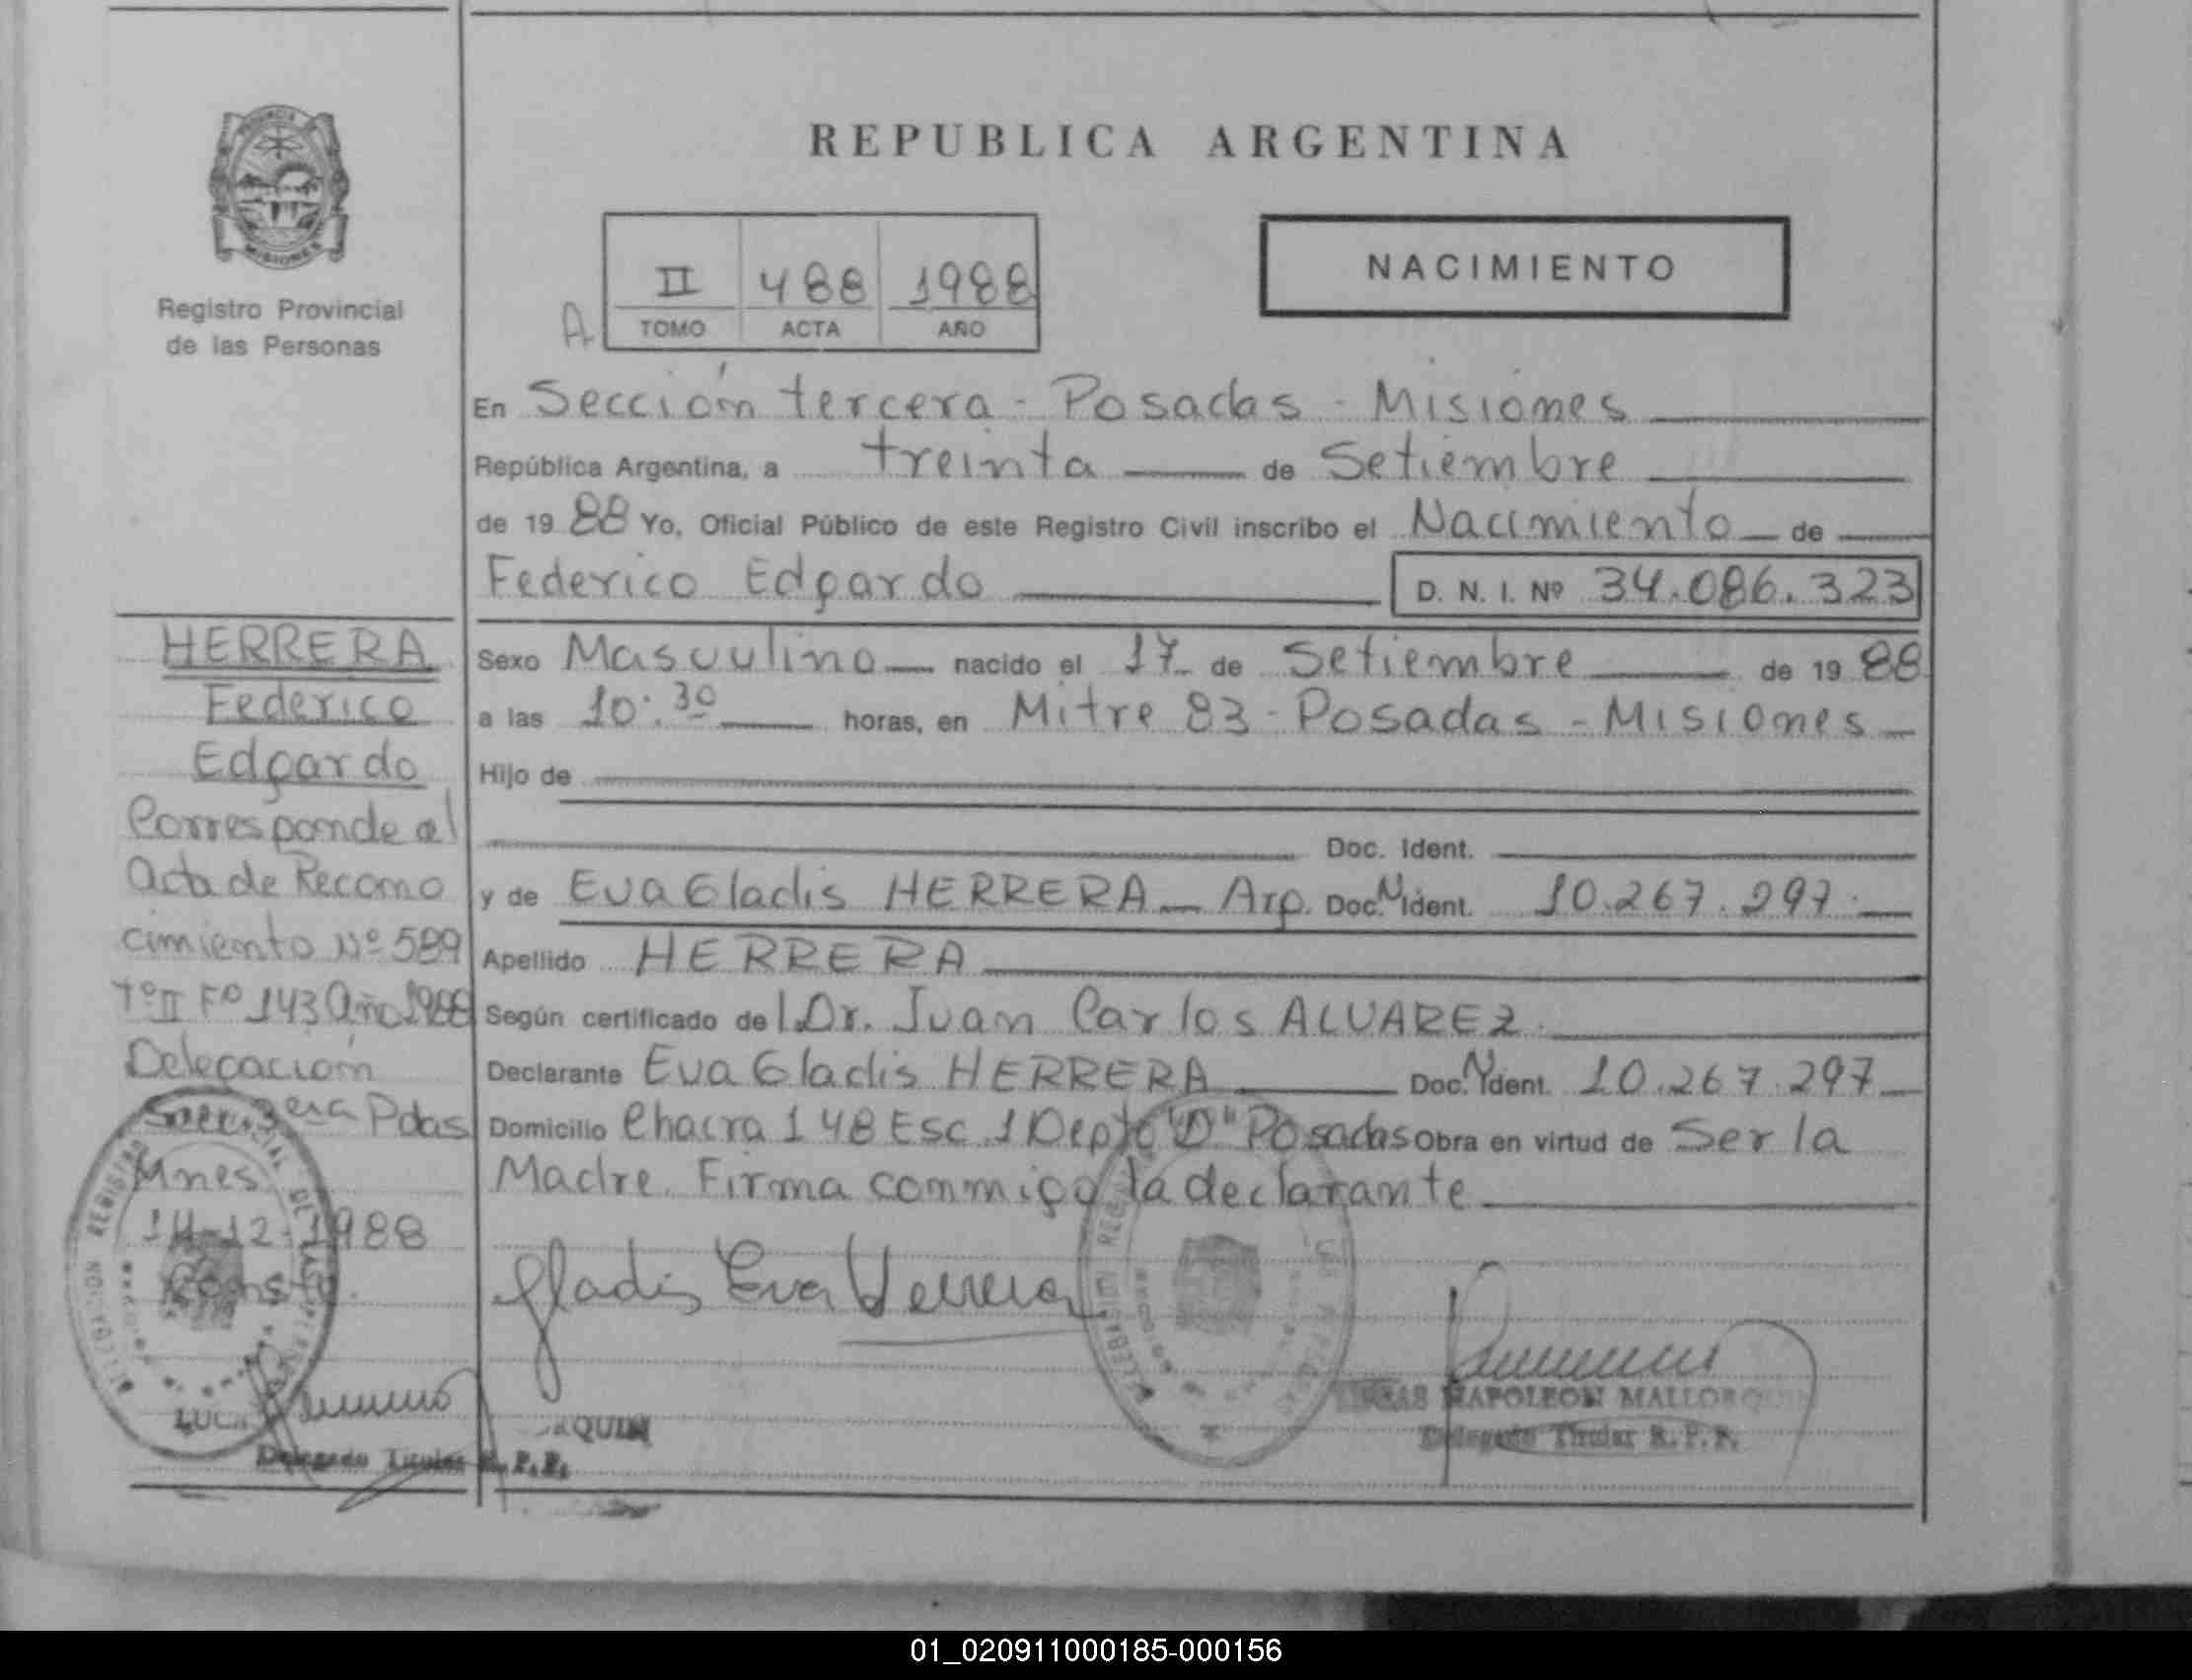 PROVINCIA DE
MISIONES
Registro Provincial
de las Personas
REPUBLICA ARGENTINA
NACIMIENTO
A
II 488 1988
TOMO ACTA AÑO
En Sección tercera - Posadas - Misiones
República Argentina, a treinta de Setiembre
de 1988 Yo, Oficial Público de este Registro Civil inscribo el Nacimiento de
Federico Edgardo D. N. I. Nº 34.086.323
Sexo Masculino nacido el 17 de Setiembre de 1988
a las 10:30 horas, en Mitre 83 - Posadas - Misiones
Hijo de
Doc. Ident.
y de Eva Gladis HERRERA Arg. Doc. N Ident. 10.267.297
Apellido HERRERA
Según certificado de l Dr. Juan Carlos ALVAREZ
Declarante Eva Gladis HERRERA Doc. N Ident. 10.267.297
Domicilio Chacra 148 Esc 1 Depto "D" Posadas Obra en virtud de Ser la
Madre. Firma conmigo la declarante
Gladis Eva Herrera
LUCAS NAPOLEON MALLORQUIN
Delegado Titular R. P. P.
HERRERA
Federico
Edgardo
Corresponde al
Acta de Recono
cimiento Nº 589
Tº II Fº 143 Año 1988
Delegación
Secc. 3era Pdas
Mnes
14-12-1988
Conste.
LUCA QUIN
Delegado Titular R. P. P.
01_020911000185-000156